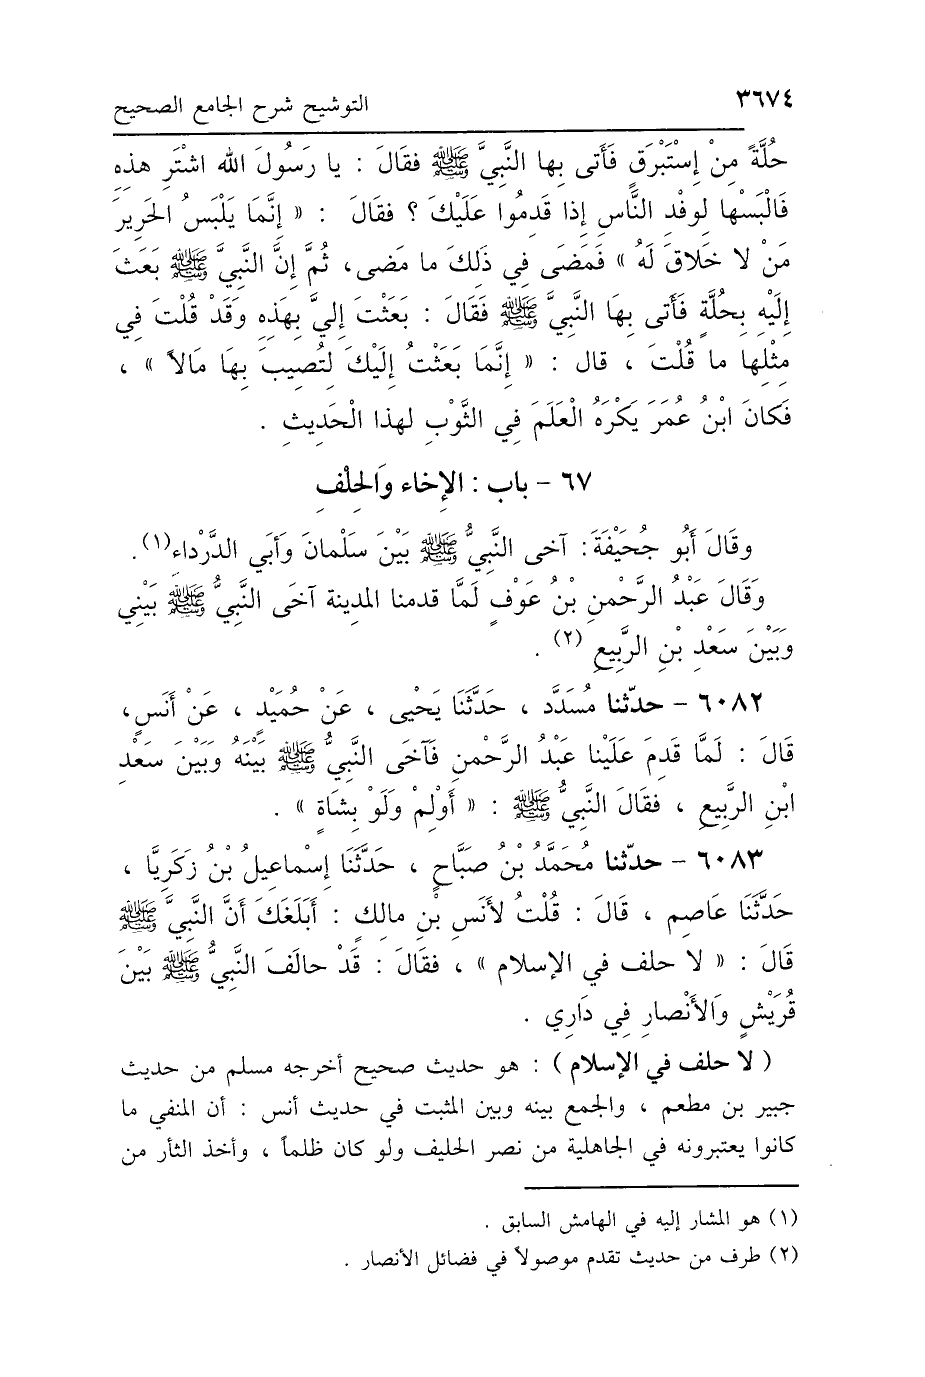 ٣٦٧٤
التوشيح شرح الجامع الصحيح
حُلَّةً مِنْ إِسْتَبْرَقٍ فَأَتى بِها النَّبِيَّ ﷺ فقَالَ : يا رَسُولَ الله اشْتَرِ هذِهِ
فَالْبَسْها لِوفْدِ النَّاسِ إِذا قَدِمُوا عَلَيْكَ ؟ فقَالَ : « إِنَّمَا يَلْبَسُ الحَرِيرَ
مَنْ لا خَلَاقَ لَهُ » فَمَضَى فِي ذَلِكَ ما مَضى، ثُمَّ إِنَّ النَّبِيَّ ﷺ بَعَثَ
إِلَيْهِ بِحُلَّةٍ فَأَتى بِهَا النَّبِيَّ ﷺ فَقَالَ : بَعَثْتَ إِلَيَّ بِهَذِهِ وَقَدْ قُلْتَ فِي
مثْلِها ما قُلْتَ ، قال : « إِنَّمَا بَعَثْتُ إِلَيْكَ لِتُصِيبَ بِهَا مَالاً » ،
فَكَانَ ابْنُ عُمَرَ يَكْرَهُ الْعَلَمَ فِي الثَّوْبِ لهذا الْحَدِيثِ .
٦٧ - باب : الإخاء وَالحِلْفِ
وقَالَ أَبُو جُحَيْفَةَ: آخى النَّبِيُّ ﷺ بَيْنَ سَلْمانَ وَأَبي الدَّرْداءِ(١).
وَقَالَ عَبْدُ الرَّحْمنِ بْنُ عَوْفٍ لَمَّا قدمنا المدينة آخَى النَّبِيُّ ﷺ بَيْنِي
وَبَيْنَ سَعْدِ بْنِ الرَّبِيعِ (٢) .
٦٠٨٢ - حدّثنا مُسَدَّد ، حَدَّثَنَا يَحْيى ، عَنْ حُمَيْدٍ ، عَنْ أَنَسٍ،
قَالَ : لَمَّا قَدِمَ عَلَيْنا عَبْدُ الرَّحْمنِ فَآخَى النَّبِيُّ ﷺ بَيْنَهُ وَبَيْنَ سَعْدِ
ابْنِ الرَّبِيعِ ، فقَالَ النَّبِيُّ ﷺ : « أَوْلِمْ وَلَوْ بِشَاةٍ » .
٦٠٨٣ - حدّثنا مُحَمَّدُ بْنُ صَبَّاحٍ ، حَدَّثَنَا إِسْماعِيلُ بْنُ زَكَرِيَّا ،
حَدَّثَنَا عَاصِم ، قَالَ : قُلْتُ لأَنَسِ بْنِ مالِكٍ : أَبَلَغَكَ أَنَّ النَّبِيَّ ﷺ
قَالَ : « لا حلف في الإسلام » ، فقَالَ : قَدْ حالَفَ النَّبِيُّ ﷺ بَيْنَ
قُرَيْشٍ وَالأَنْصارِ فِي دَارِي .
( لا حلف في الإسلام ) : هو حديث صحيح أخرجه مسلم من حديث
جبير بن مطعم ، والجمع بينه وبين المثبت في حديث أنس : أن المنفي ما
كانوا يعتبرونه في الجاهلية من نصر الحليف ولو كان ظلماً ، وأخذ الثأر من
(١) هو المشار إليه في الهامش السابق .
(٢) طرف من حديث تقدم موصولاً في فضائل الأنصار .